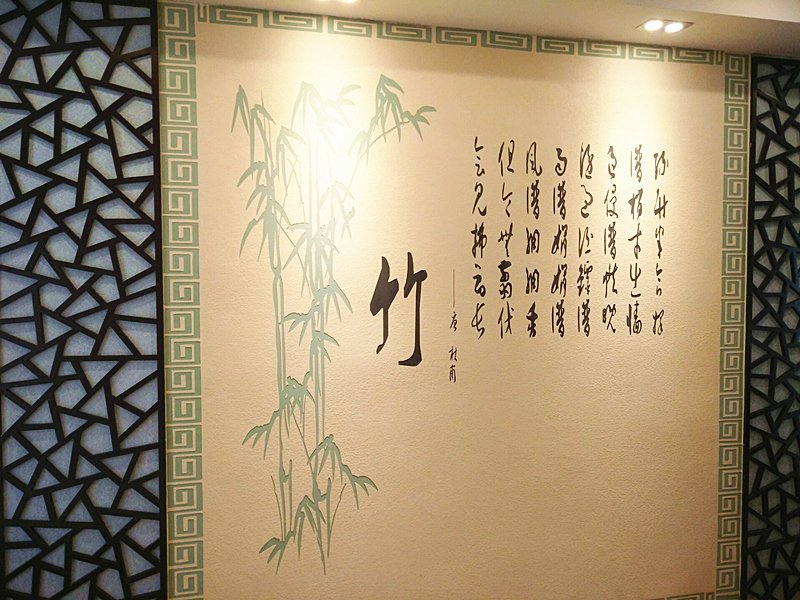 绿竹半含箨
梢才出墙
色侵帙晚
阴过酒樽
雨娟娟
风细细香
但令无翦伐
会见拂云长
——唐 杜甫
竹